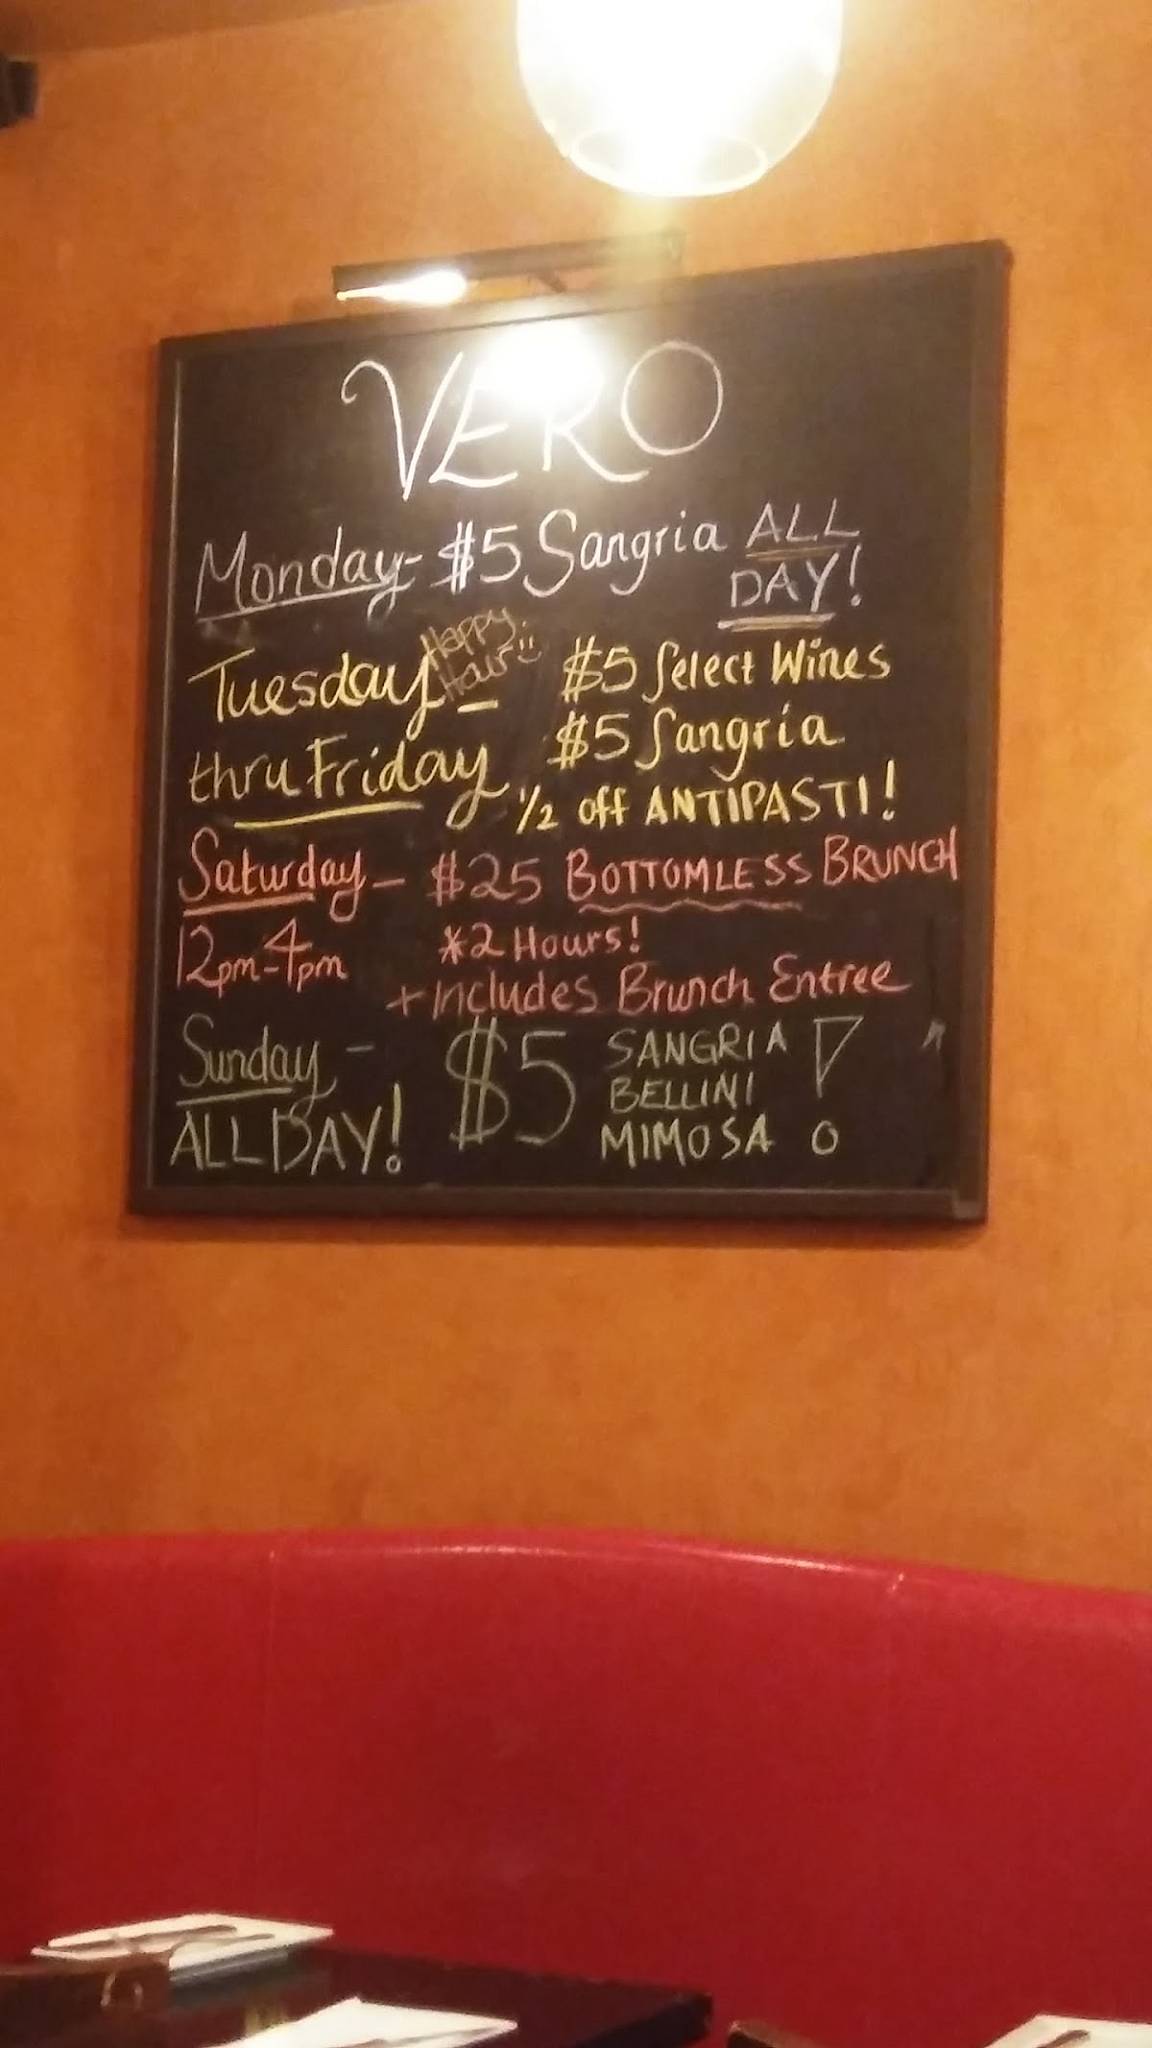 VERO
Monday- $5 Sangria ALL DAY!
Tuesday Happy Hour - $5 Select Wines
thru Friday $5 Sangria
1/2 off ANTIPASTI!
Saturday - $25 BOTTOMLESS BRUNCH
12pm-4pm *2 Hours!
+Includes Brunch Entree
Sunday - $5 SANGRIA !
BELLINI
ALL DAY! MIMOSA